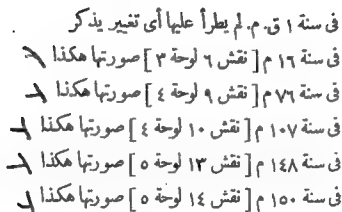 فى سنة ١ ق. م. لم يطرأ عليها أى تغيير يذكر .
فى سنة ١٦ م [ نقش ٦ لوحة ٣ ] صورتها هكذا
فى سنة ٧٦ م [ نقش ٩ لوحة ٤ ] صورتها هكذا
فى سنة ١٠٧ م [ نقش ١٠ لوحة ٤ ] صورتها هكذا
فى سنة ١٤٨ م [ نقش ١٣ لوحة ٥ ] صورتها هكذا
فى سنة ١٥٠ م [ نقش ١٤ لوحة ٥ ] صورتها هكذا